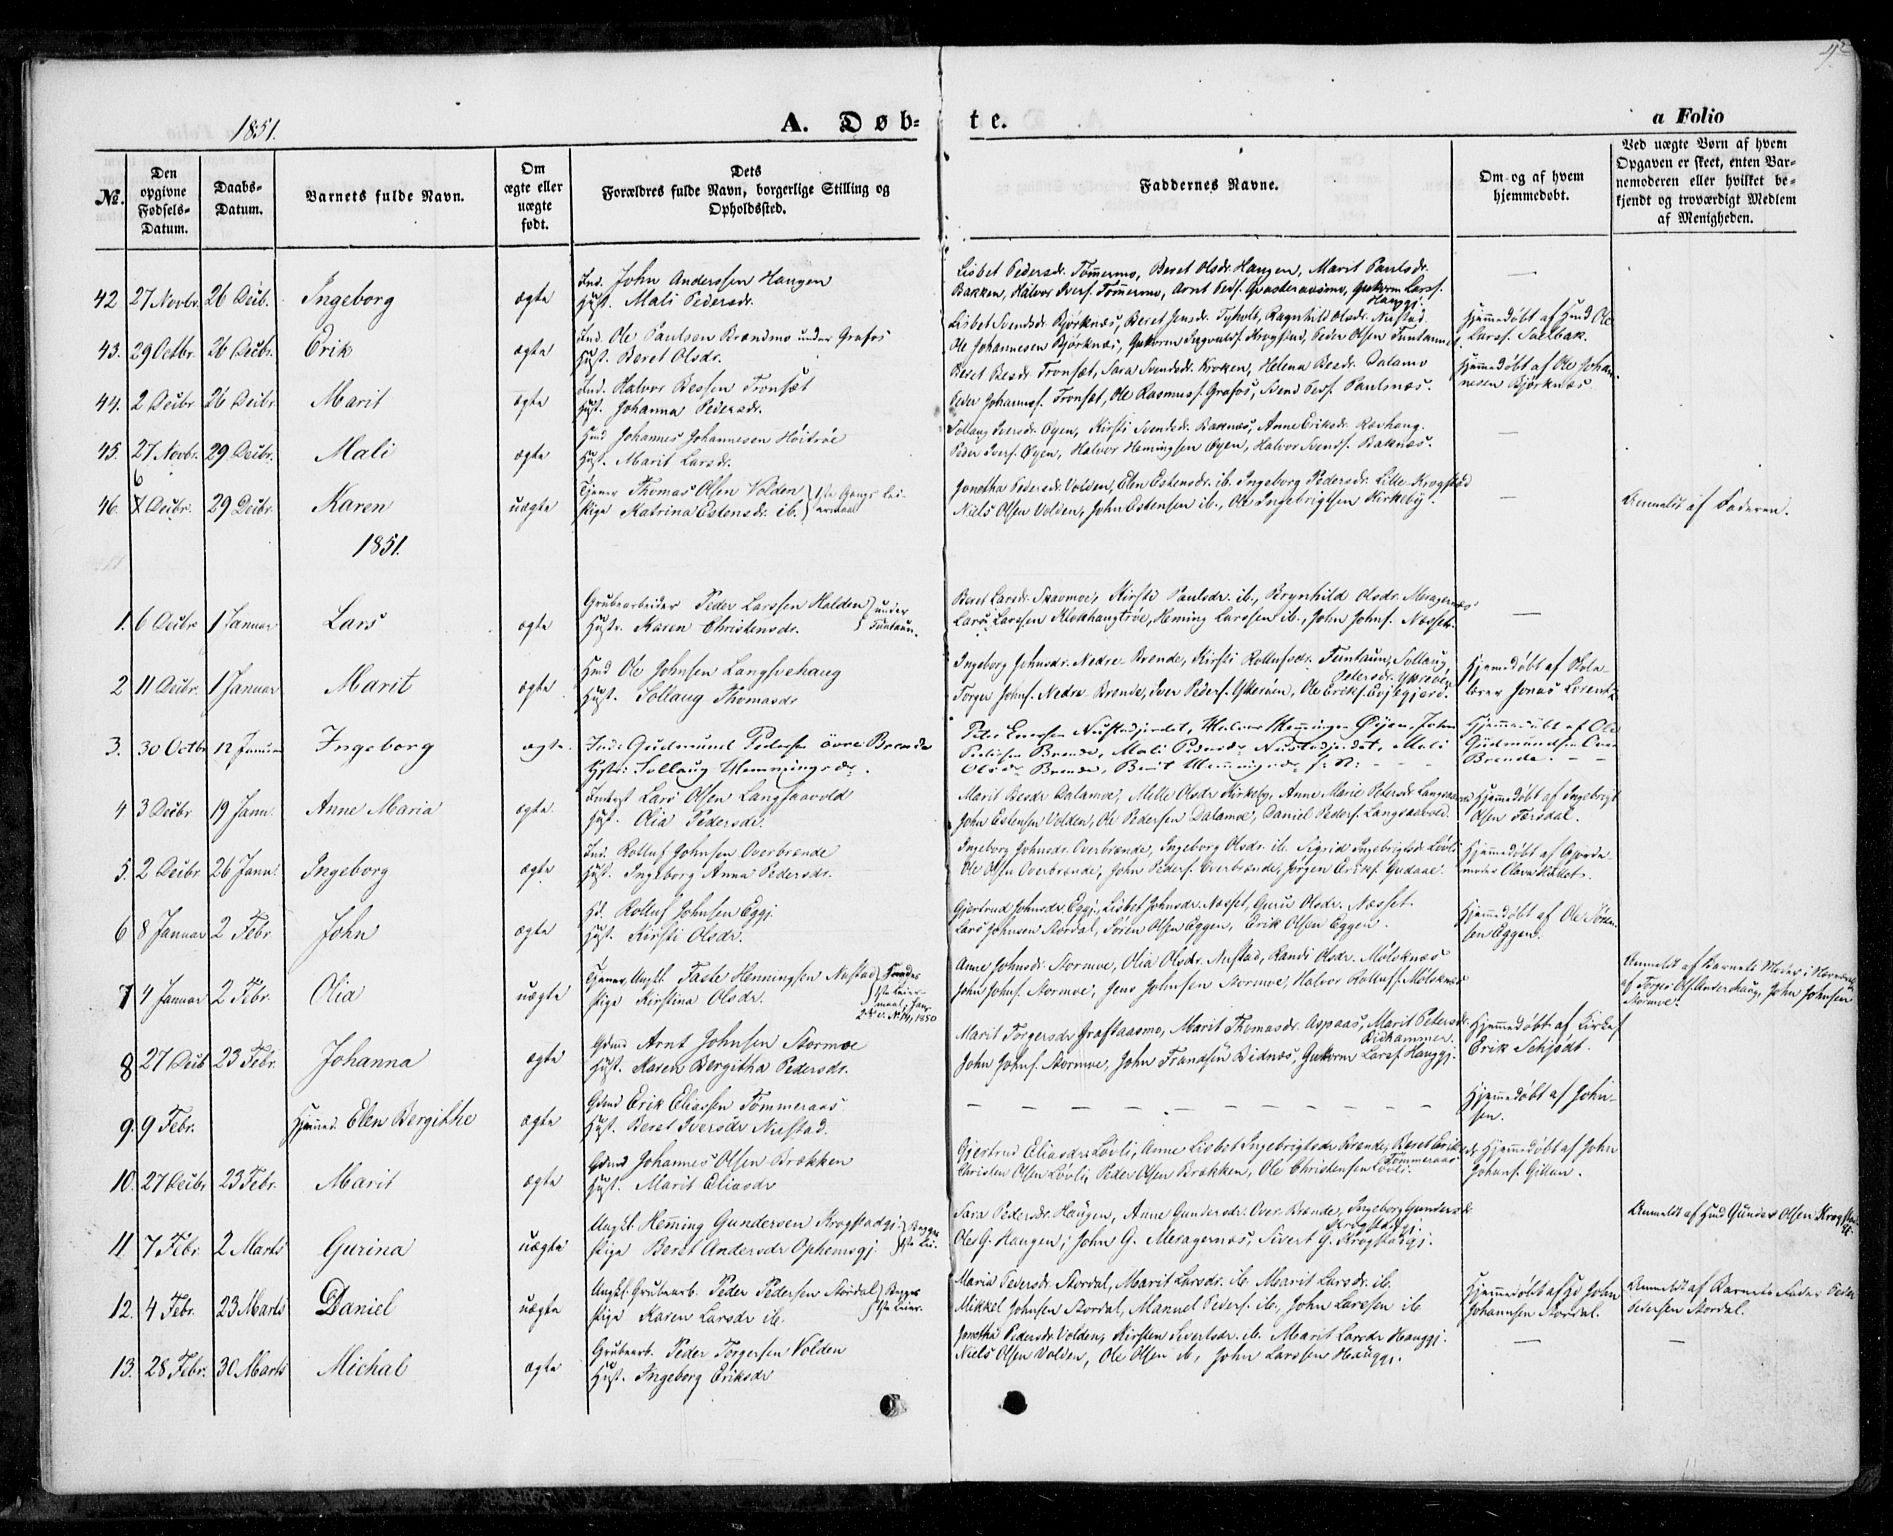 1851.
A. Døb-
te.
a Folio
№.
Den
opgivne
Fødsels-
Datum.
Daabs-
Datum.
Barnets fulde Navn.
Om
ægte eller
uægte
født.
Dets
Forældres fulde Navn, borgerlige Stilling og
Opholdssted.
Faddernes Navne.
Om og af hvem
hjemmedøbt.
Ved uægte Børn af hvem
Opgaven er skeet, enten Bar-
nemoderen eller hvilket be-
kjendt og troværdigt Medlem
af Menigheden.
42 27 Novbr. 26 Decb. Ingeborg ægte
Ind. John Anderssen Haugen
Hust. Mali Pedersdr.
Lisbet Pedersdr. Tømmermo, Beret Olsdr. Haugen, Marit Paulsdr.
Bakken, Halvor Iversf. Tømmermo, Arnt Pedf. Grasteraasmo, Guttorm Larsf.
Hauggj.
43. 29 Octbr. 26 Decbr. Erik ægte
Ind. Ole Paulsen Brændmo under Grafos
Hust. Beret Olsdr.
Lisbet Svendsdr. Bjørknæs, Beret Jensdr. Tyholt, Ragnhild Olsdr. Nustad.
Ole Johannesen Bjørknæs, Guttorm Ingvaldf. Krogstad, Peder Olsen Funtaunet
Hjemmedøbt af Huusmd Ole
Larsf. Solbak.
44. 2 Decbr 26 Decbr. Marit ægte
Ind. Halvor Bessen Tronsæt
Hust. Johanna Pedersdr.
Beret Besdr Tronsæt, Sara Svendsdr. Kroken, Helena Besdr. Dalamo
Peder Johannsf. Tronsæt, Ole Rasmusf. Grafos, Svend Pedf. Paulsnæs.
Hjemmedøbt af Ole Johan-
nesen Bjørknæs.
45. 27 Novbr. 29 Decbr. Mali ægte
Hmd Johannes Johannesen Høitrøe
Hust. Marit Larsdr.
Sollaug Iversdr. Øyen, Kirsti Svendsdr. Baknæs, Anne Eriksdr. Rævhaug.
Peder Iversf. Øyen, Halvor Hemingsen Øyen, Halvor Svendf. Baknæs.
46. 6 Decbr. 29 Decbr. Karen uægte
Tjener Thomas Olsen Volden
Pige Katrina Estensdr. ib.
1ste Gangs Lei-
ermaal
Jonetha Pedersdr Volden, Elen Estensdr. ib. Ingeborg Pedersdr. Lille-Krogstad
Niels Olsen Volden, John Estensen ib., Ole Ingebrigtsen Kirkeby.
Anmeldt af Faderen.
1851.
1. 6 Decbr 1 Januar Lars ægte
Grubearbeider Peder Larssen Halden
Hustr. Karen Christensdr.
under
Funtaun.
Beret Larsdr. Skavmoe, Kirsti Paulsdr. ib., Brynhild Olsdr. Meragernæs
Lars Larssen Klokhaugtrøe, Heming Larssen ib., John Johnf. Næsset.
2 11 Decbr. 1 Januar Marit ægte
Hmd Ole Johnsen Langsvehaug
Hust. Sollaug Thomasdr
Ingeborg Johnsdr. Nedre-Brende, Kirsti Rollufsdr. Funtaun, Sollaug
Petersdr. Ytterøen
Torger Johnf. Nedre Brende, Iver Pederf. Ytterøen, Ole Erikf. Evjegjerd.
Hjemmedøbt af Skole-
lærer Jonas Lorentz
3. 30 Octbr 12 Januar Ingeborg ægte.
Ind: Gudmund Pedersen övre Brende
Hstr: Sollaug Hemmingsdr.
Peter Evensen Nustadjerdet, Halvor Hemmingsen Øijen, John
Pedersen Brende, Mali Pedersdr Nustadjerdet, Mali
Olsdr Brende, Berit Hemmingsdr
Hjemmedöbt af Ole
Gudmundsen Över
Brende.
4 3 Decbr 19 Janu. Anne Maria ægte
Inderst Lars Olsen Langsaavold
Hust. Olia Pedersdr.
Marit Besdr Dalamoe, Mille Olsdr Kirkeby, Anne Marie Petersdr Langsaavold
John Estensen Volden, Ole Pedersen Dalamoe, Daniel Pederf. Langsaavold.
Hjemmedøbt af Ingebrigt
Olsen Farsdal.
5. 2 Decbr 26 Janu. Ingeborg ægte
Ind. Rolluf Johnsen Overbrænde
Hust. Ingeborg Anna Pedersdr.
Ingeborg Johnsdr. Overbrænde, Ingeborg Olsdr. ib. Sigrid Ingebrigtsdr. Løvli
Ole Olsen Overbrænde, John Pedersf. Overbrænde, Jørgen Erikf. Gudaae.
Hjemmedøbt af Gjorde-
moder Olava Kulset.
6 8 Januar 2 Febr John ægte
Hd. Rolluf Johnsen Eggj.
Hust. Kirsti Olsdr.
Gjertrud Johnsdr. Eggj., Lisbet Johnsdr. Næsset, Guru Olsdr. Næsset.
Lars Johnsen Stordal, Søren Olsen Eggen, Erik Olsen Eggen.
Hjemmedøbt af Ole Søren-
sen Eggen.
7 4 Januar 2 Febr. Olia uægte
Tjener, Ungkl. Taste Hemingsen Nustad
Pige Kirstina Olsdr.
Anne Johnsdr. Stormoe, Olia Olsdr. Nustad, Randi Olsdr. Møloknæs
John Johnf. Stormoe, Jens Johnsen Stormoe, Halvor Rollufsf. Møloknæs
Anmeldt af Barnets Moder i Nærværelse
af Torger Olf. Anderhaug, John Johnsen
Stormoe.
8 27 Decb 23 Febr. Johanna ægte
Gdmd Arnt Johnsen Stormoe
Hust. Karen Bergitha Pedersdr.
Marit Torgersdr Grafstaasmo, Marit Thomasdr. Aspaas, Marit Petersdr.
Bidhammer.
John Johnf. Stormoe, John Trondsen Bidnæs, Guttorm Larsf. Hauggj.
Hjemmedøbt af Kirkesf
Erik Schjødt.
9. 9 Febr. Hjemmed. Elen Bergitthe ægte
Gdmd Erik Eliassen Tømmeraas
Hust. Beret Iversdr Nustad.
Hjemmedøbt af John-
sen.
10. 27 Decbr 23 Febr. Marit ægte
Gdmd Johannes Olsen Brækken
Hust. Marit Eliasdr
Gjertrud Eliasdr. Løvli, Anne Lisbet Ingebrigtsdr Brende, Beret Eriksdr
Tømmeraas.
Christen Olsen Løvli, Peder Olsen Brækken, Ole Christensen Løvli.
Hjemmedøbt af John
Johanf. Gilsan.
11 7 Febr 2 Marts Gurina uægte
Ungkl. Heming Gundersen Krogstadgj.
Pige Beret Andersdr Ophemsgj.
Begges
1ste Lei.
Sara Pedersdr. Haugen, Anne Gundersdr. Over Brende, Ingeborg Gundersdr
Krogstadgj.
Ole G. Haugen; John G. Meragernæs, Sivert G. Krogstadgj.
Anmeldt af Hmd Gunder Olsen Krogstad
gj.
12. 4 Febr. 23 Marts Daniel uægte
Ungkl. Grubearb. Peder Pedersen Stordal
Pige Karen Larsdr ib.
Begges
1ste Leier.
Maria Pedersdr. Stordal, Marit Larsdr. ib. Marit Larsdr. ib.
Mikkel Johnsen Stordal, Manuel Pederf. ib., John Larssen ib
Hjemmedøbt af Gd John
Johannsen Stordal.
Anmeldt af Barnets Fader Peder
Pedersen Stordal.
13. 28 Febr. 30 Marts Michal ægte
Grubearb. Peder Torgersen Volden
Hust. Ingeborg Eriksdr
Jonetha Pedersdr. Volden, Kirsten Sivertsdr. ib. Marit Larsdr Hauggj.
Niels Olsen Volden, Ole Olsen ib, John Larssen Hauggj.